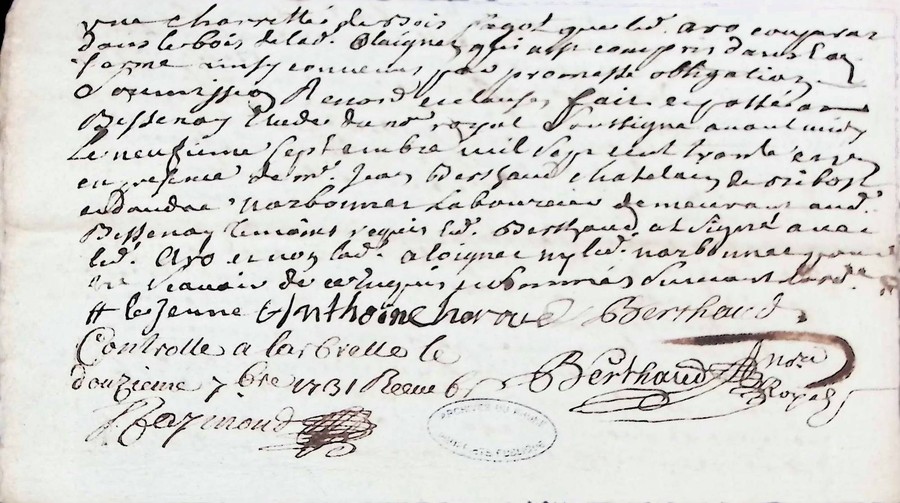 une charrettée de bois fagot que led. Aro couparat
dans le bois de lad. Aloignet qui est compris dans la
ferme ainsy convenus par promesse obligation
Soumission Renond et clauses fait et passé au
Bessenay Etude du no.re royal Soussigné avant midy
Le neufieme Septembre mil Sept cent trente et un
en presence de m.r Jean Berthaud chatelain de
et andre narbonnet Laboureur demeurant aud.
Bessenay temoins requis led. Berthaud at Signé avec
led. Aro et non lad. aloignet ny led. narbonnet pour
ne Scavoir de ce Enquis et Sommés Suivant Lord.ce
# le jeune Anthoine haroud Berthaud
Controlle a larbrelle le
douzieme 7bre 1731 Receu Berthaud no.re
Raymond Royal